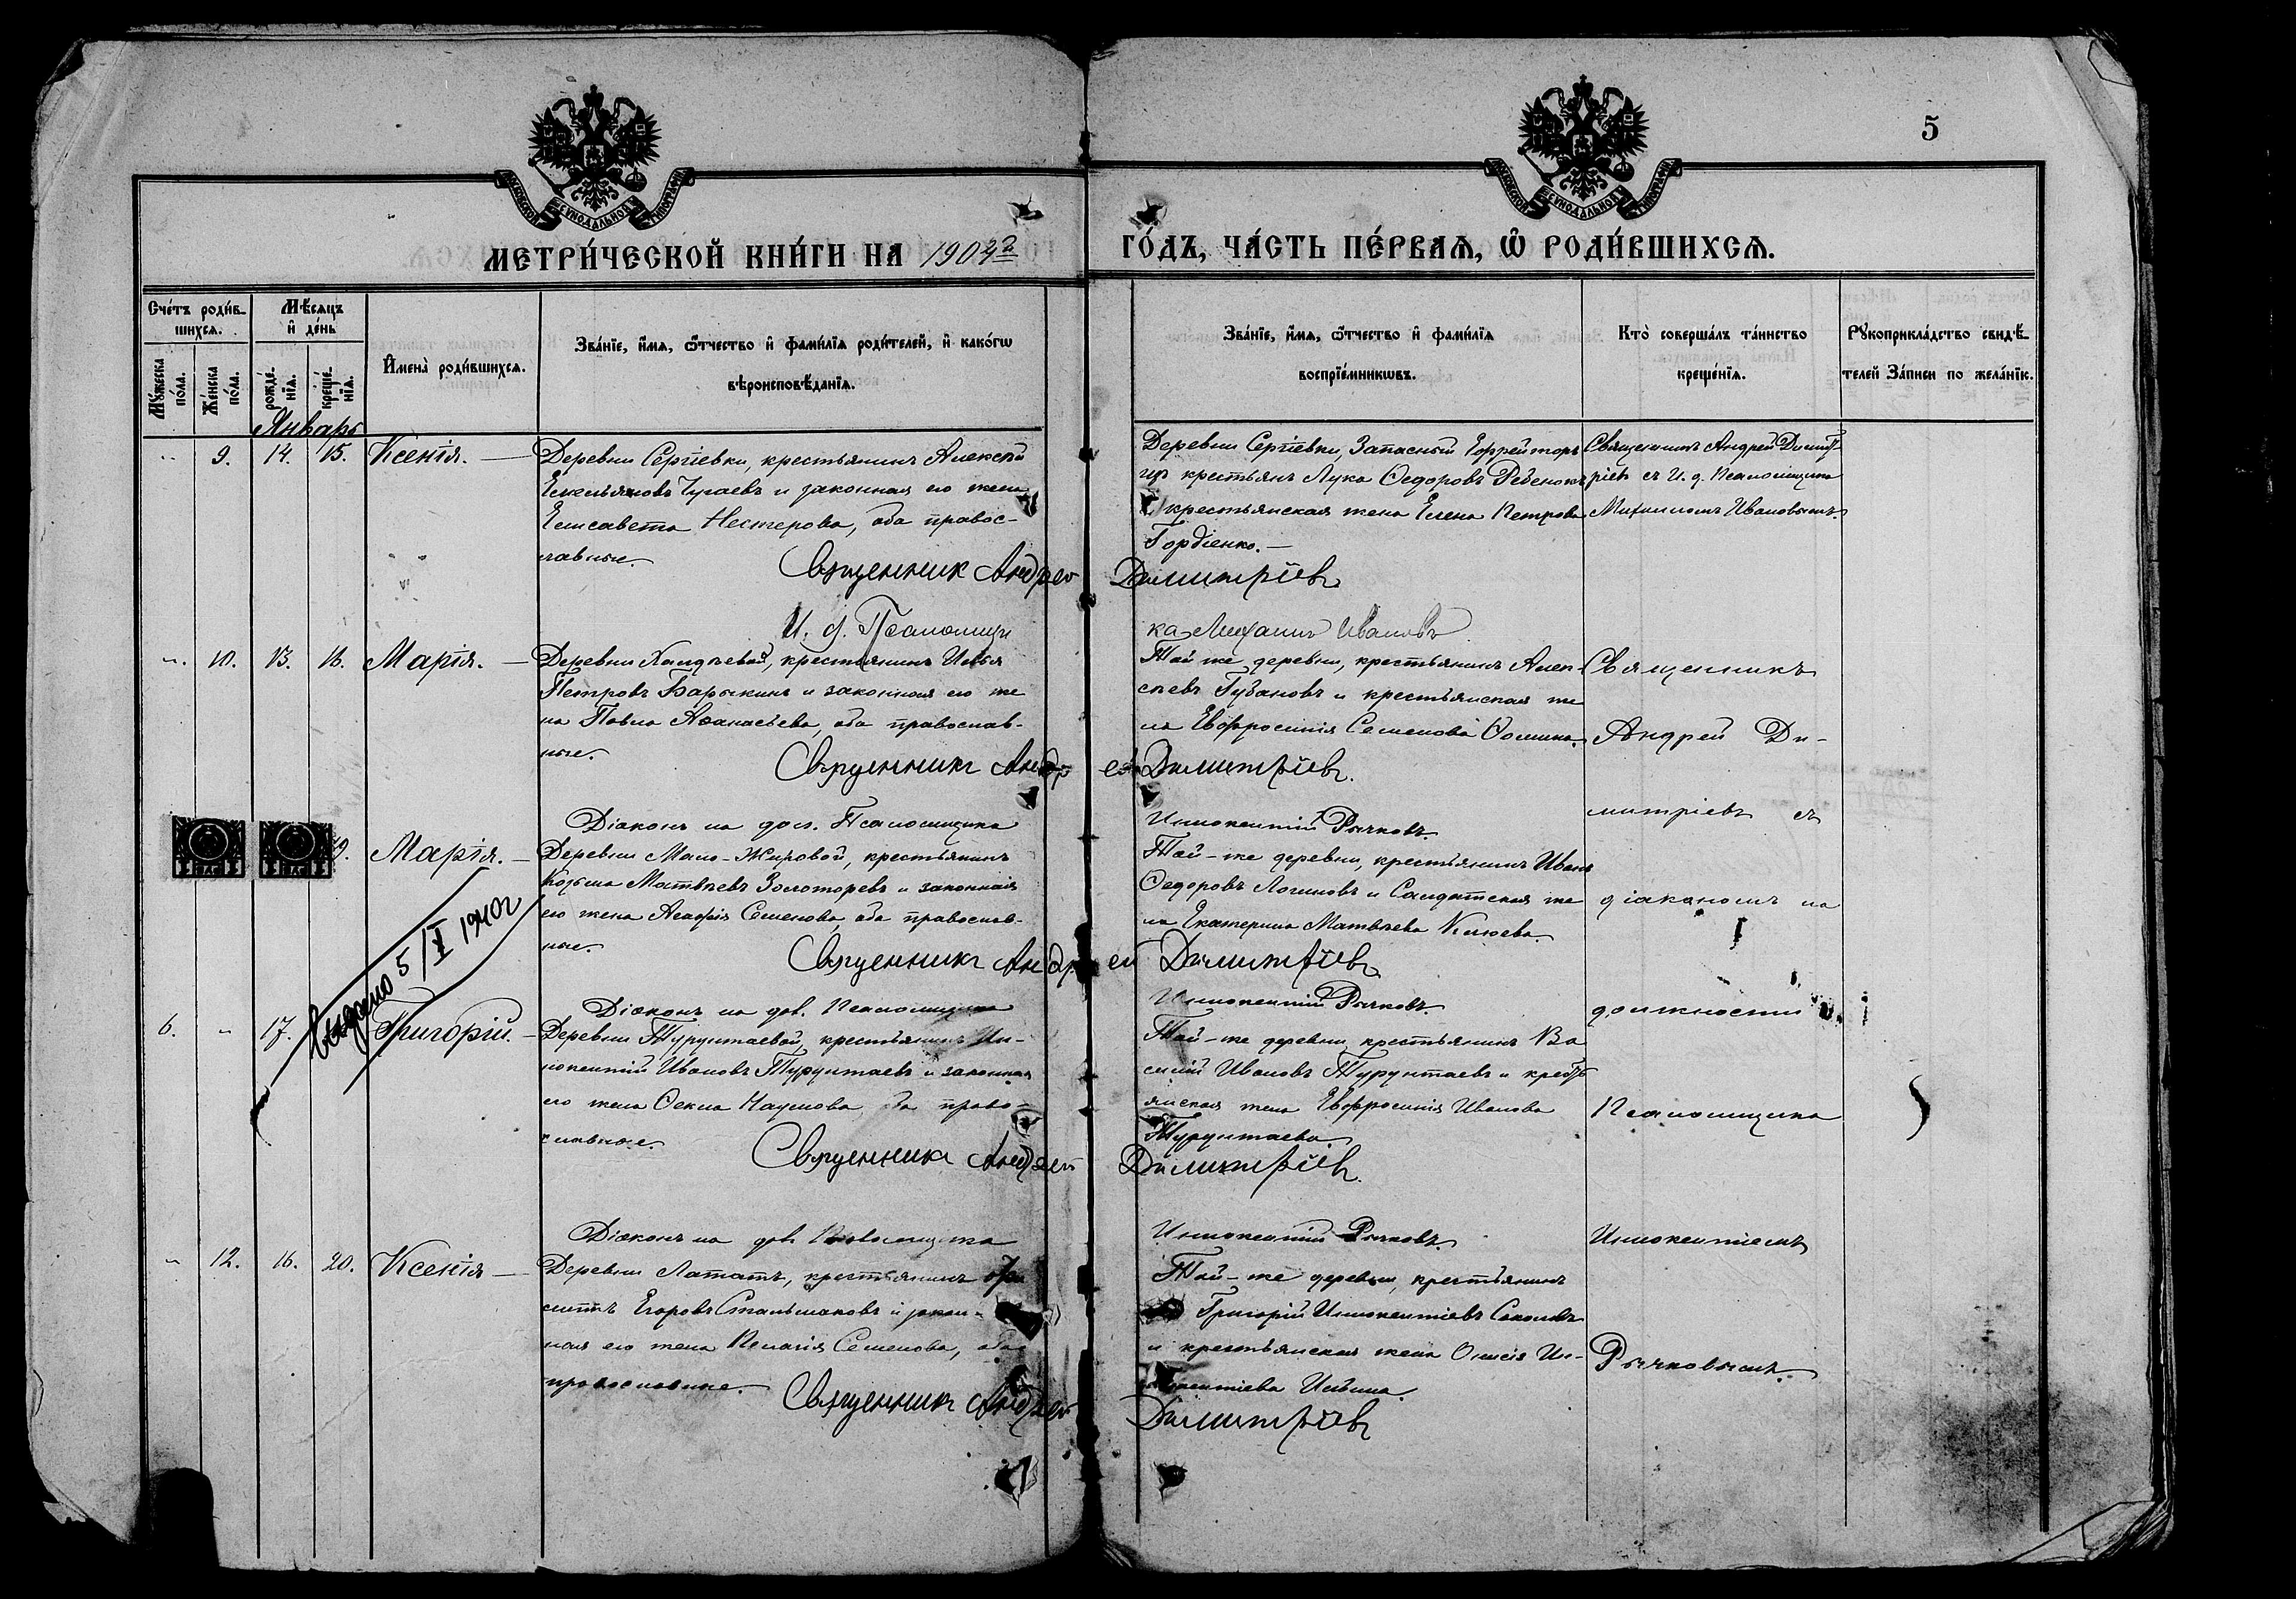 5
МОСКОВСКОЙ СѴНОДАЛЬНОЙ ТИПОГРАФІИ
МОСКОВСКОЙ СѴНОДАЛЬНОЙ ТИПОГРАФІИ
МЕТРИ́ЧЕСКОЙ КНИ́ГИ НА
ГО́ДЪ, ЧА́СТЬ ПЕ́РВАѦ, Ѡ҆ РОДИ́ВШИХСѦ.
Сче́тъ роди́в-
шихсѧ.
Мѣ́сѧцъ
и҆ де́нь
Мꙋ́жеска
по́ла.
Же́нска
по́ла.
рожде́-
нїѧ.
креще́-
нїѧ.
И҆мена̀ роди́вшихсѧ.
Зва́нїе, и҆́мѧ, ѻ҆́тчество и҆ фами́лїѧ роди́телей, и҆ како́гѡ
вѣроисповѣ́данїѧ.
Зва́нїе, и҆́мѧ, ѻ҆́тчество и҆ фами́лїѧ
воспрїе́мникѡвъ.
Кто̀ соверша́лъ та́инство
креще́нїѧ.
Рꙋкоприкла́дство свидѣ́-
телей за́писи по жела́нїю.
Январь
9. 14. 15. Ксенія.
Деревни Сергіевки, крестьянинъ Алексѣй
Емельяновъ Чугаевъ и законная его жена
Елисавета Нестерова, оба правос-
лавные.
Деревни Сергіевки, Запасный Ефрейторъ
изъ крестьянъ Лука Ѳедоровъ Ребенокъ
крестьянская жена Елена Петрова
Гордіенко.
Священникъ Андрей Димит-
ріевъ съ И. д. Псаломщика
Михаиломъ Ивановымъ.
Священник Андрей Димитріевъ
И. д. Псаломщика Михаилъ Ивановъ
10. 13. 16. Марія.
крестьянинъ Илья
Петровъ Барыкинъ и законная его же
на Павла Аѳанасьева, оба православ-
ные.
Той же деревни, крестьянинъ Алек-
сѣевъ Губановъ и крестьянская же
на Евфросинія Семенова Ѳомина.
Священникъ
Андрей Ди-
митріевъ съ
діакономъ на
должности
Псаломщика
Иннокентіемъ
Рычковымъ.
Священникъ Андрей Димитріевъ.
Діаконъ на дол. Псаломщика Иннокентій Рычковъ.
9. Марія.
Деревни Мало-Жировой, крестьянинъ
Козьма Матвѣевъ Золоторевъ и законная
его жена Агафія Семенова, оба православ-
ные.
Той-же деревни, крестьянинъ Иванъ
Ѳедоровъ Логиновъ и Салдатская же
на Екатерина Матвѣева Клюева.
Священникъ Андрей Димитріевъ
Діаконъ на дол. Псаломщика Иннокентій Рычковъ.
Выдано 5/V 1940г
6. 17. Григорій.
Деревни Турунтаевой, крестьянинъ Ин-
нокентій Ивановъ Турунтаевъ и законная
его жена Ѳекла Наумова, оба право-
славные.
Той-же деревни, крестьянинъ Ва
силій Ивановъ Турунтаевъ и кресть
янская жена Евфросинія Иванова
Турунтаева.
Священника Андрей Димитріевъ.
Діаконъ на дол. Псаломщика Иннокентій Рычковъ.
12. 16. 20. Ксенія
Деревни Лататъ, крестьянинъ
Егоровъ Стальмаковъ и закон-
ная его жена Пелагія Семенова, оба
православные.
Той-же деревни, крестьянинъ
Григорій Иннокентіевъ Соколовъ
и крестьянская жена Ин-
нокентіева Ильина.
Священникъ Андрей Димитріевъ